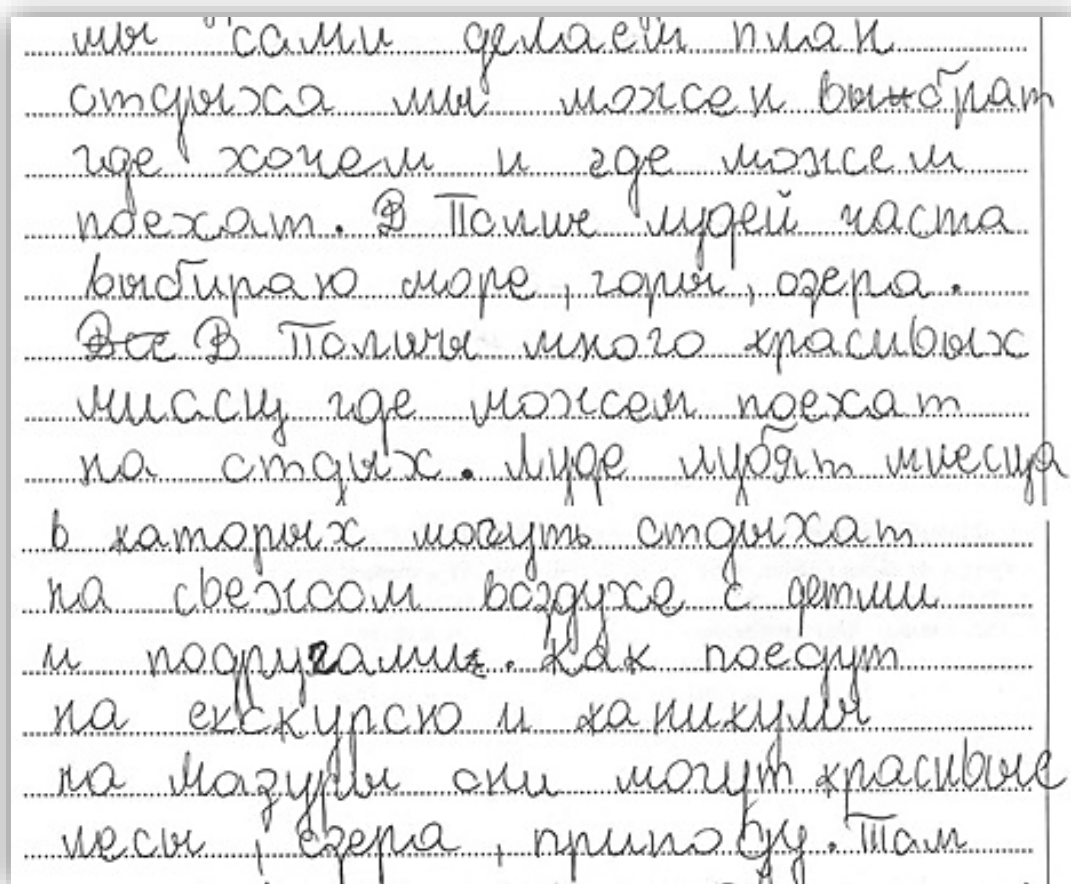 мы сами делаем план
отдыха мы можем выбрат
где хочем и где можем
поехат. В Полше лудей часта
выбираю море, горы, озера.
Все В Полшы много красивых
миасц где можем поехат
на отдых. Луде лубят миесца
в каторых могуть отдыхат
на свежом воздухе с детми
и подругами. Как поедут
на екскурсю и каникулы
на Мазуры они могут красивые
лесы, езера, прироbду. Там